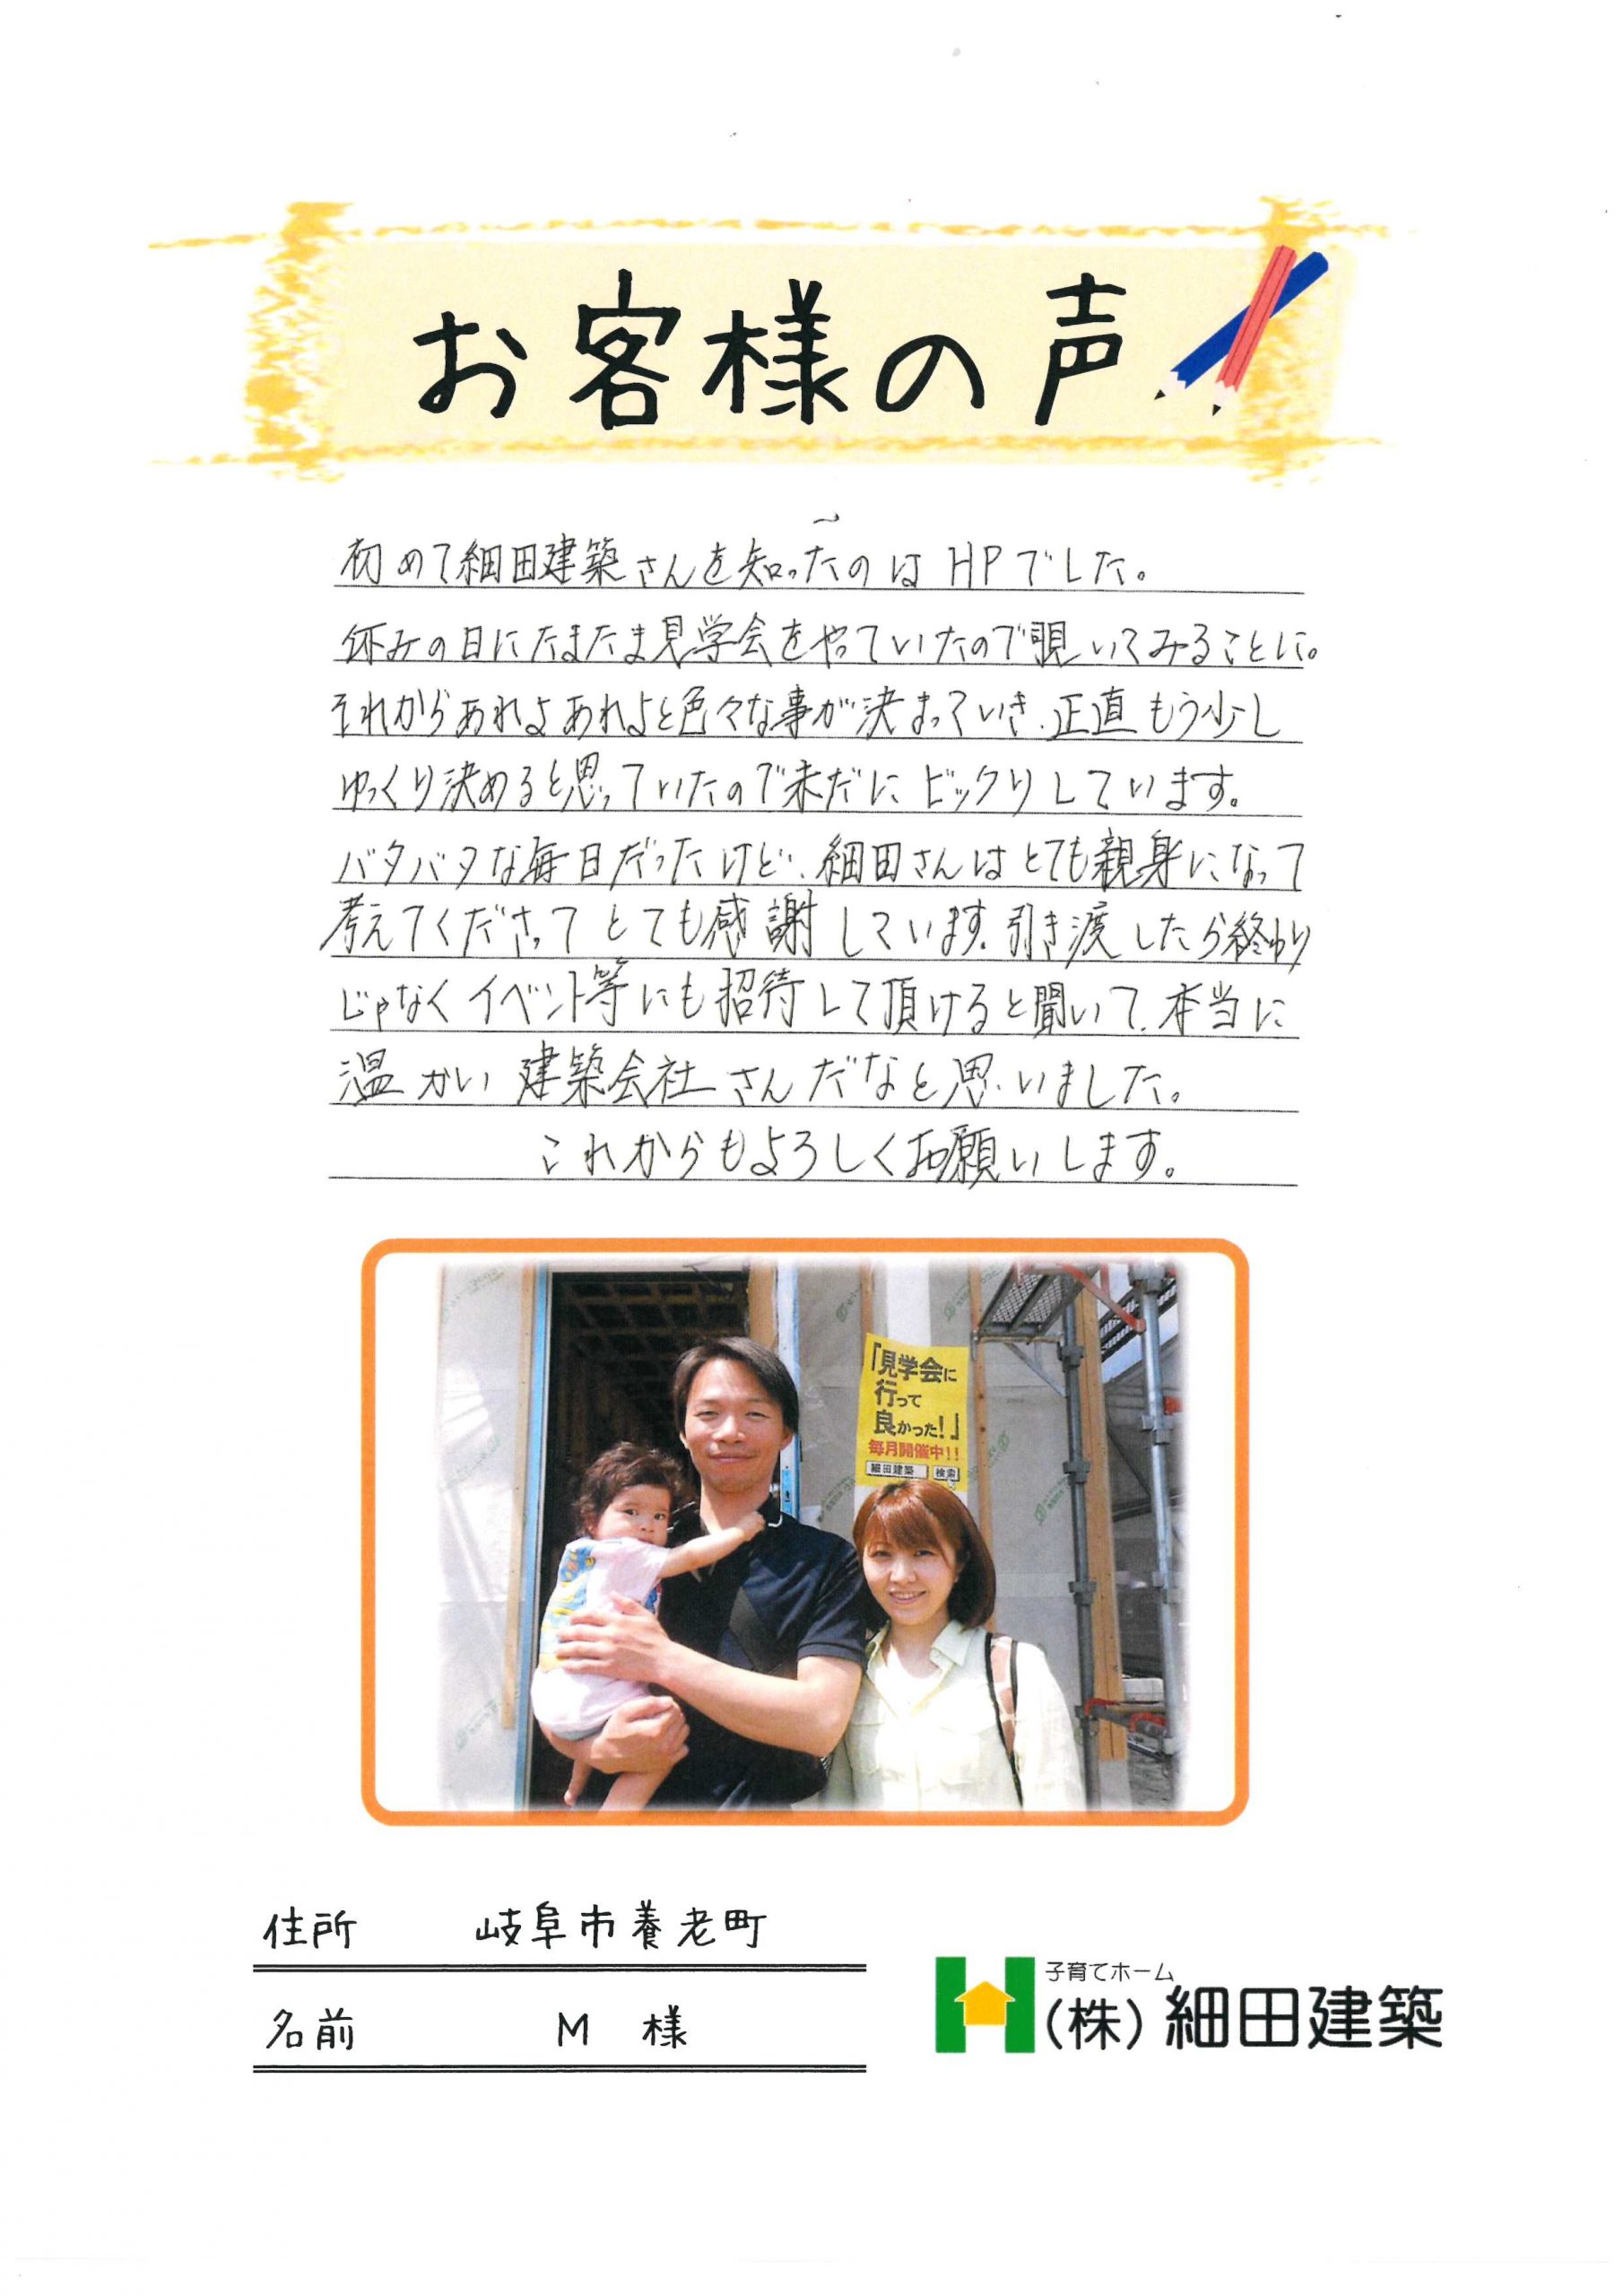 お客様の声
初めて細田建築さんを知ったのはHPでした。
休みの日にたまたま見学会をやっていたので覗いてみることに。
それからあれよあれよと色々な事が決まっていき、正直もう少し
ゆっくり決めると思っていたので未だにビックリしています。
バタバタな毎日だったけど、細田さんはとても親身になって
考えてくださってとても感謝しています。引き渡したら終わり
じゃなくイベント等にも招待して頂けると聞いて、本当に
温かい建築会社さんだなと思いました。
これからもよろしくお願いします。
「見学会に
行って
良かった！」
毎月開催中！！
細田建築 検索
住所 岐阜市養老町
名前 M 様
子育てホーム
(株)細田建築